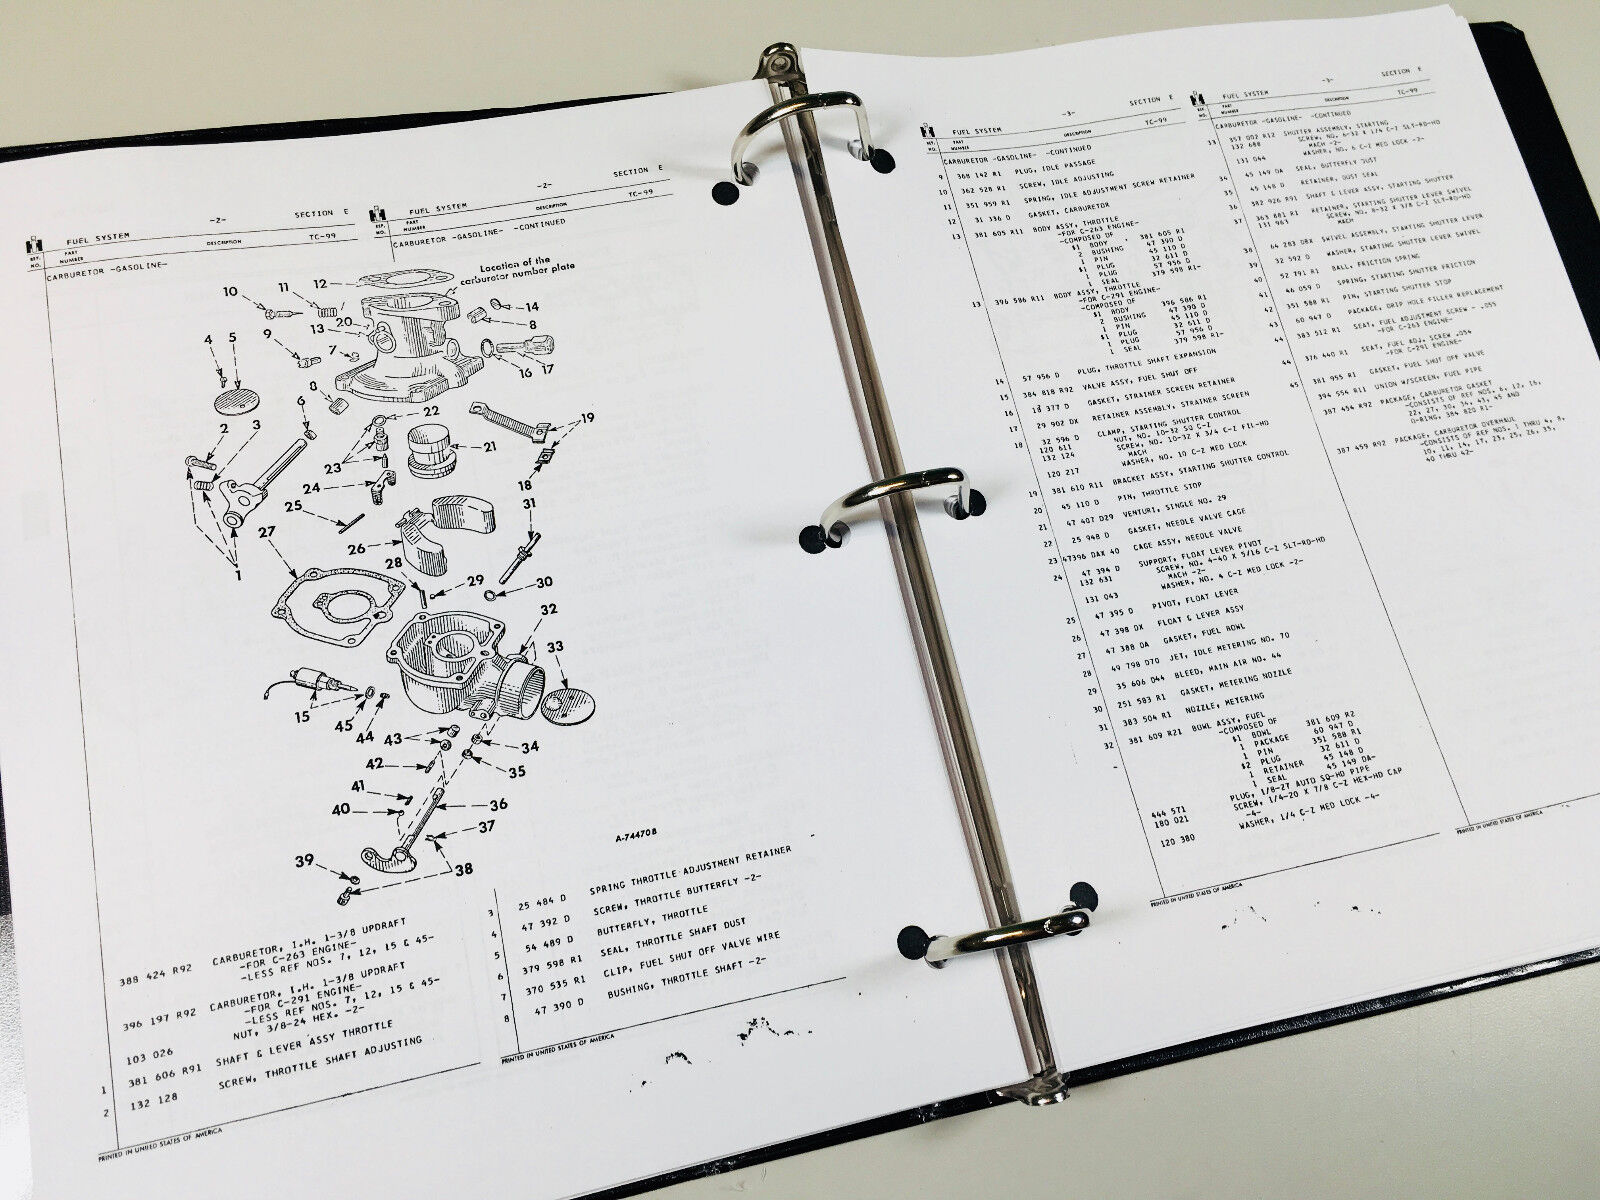 FUEL SYSTEM -2- SECTION E
REF. NO. PART NUMBER DESCRIPTION TC-99
CARBURETOR -GASOLINE-
FUEL SYSTEM -2- SECTION E
REF. NO. PART NUMBER DESCRIPTION TC-99
CARBURETOR -GASOLINE- -CONTINUED
Location of the
carburetor number plate
10
11
12
13
20
14
8
4
5
9
7
16
17
8
6
2
3
22
21
19
23
24
18
25
31
27
26
28
29
30
1
32
33
15
45
44
43
34
42
35
41
40
36
37
39
38
A-74470B
388 424 R92 CARBURETOR, I.H. 1-3/8 UPDRAFT
-FOR C-263 ENGINE-
-LESS REF NOS. 7, 12, 15 & 45-
396 197 R92 CARBURETOR, I.H. 1-3/8 UPDRAFT
-FOR C-291 ENGINE-
-LESS REF NOS. 7, 12, 15 & 45-
103 026 NUT, 3/8-24 HEX. -2-
1 381 606 R91 SHAFT & LEVER ASSY THROTTLE
2 132 128 SCREW, THROTTLE SHAFT ADJUSTING
PRINTED IN UNITED STATES OF AMERICA
3 25 484 D SPRING THROTTLE ADJUSTMENT RETAINER
4 47 392 D SCREW, THROTTLE BUTTERFLY -2-
5 54 489 D BUTTERFLY, THROTTLE
6 379 598 R1 SEAL, THROTTLE SHAFT DUST
7 370 535 R1 CLIP, FUEL SHUT OFF VALVE WIRE
8 47 390 D BUSHING, THROTTLE SHAFT -2-
PRINTED IN UNITED STATES OF AMERICA
FUEL SYSTEM -3- SECTION E
REF. NO. PART NUMBER DESCRIPTION TC-99
CARBURETOR -GASOLINE- -CONTINUED
9 368 142 R1 PLUG, IDLE PASSAGE
10 362 528 R1 SCREW, IDLE ADJUSTING
11 351 959 R1 SPRING, IDLE ADJUSTMENT SCREW RETAINER
12 31 336 D GASKET, CARBURETOR
13 381 605 R11 BODY ASSY, THROTTLE
-FOR C-263 ENGINE-
-COMPOSED OF
$1 BODY 381 605 R1
2 BUSHING 47 390 D
1 PIN 45 110 D
$1 PLUG 32 611 D
1 PLUG 57 956 D
1 SEAL 379 598 R1-
13 396 586 R11 BODY ASSY, THROTTLE
-FOR C-291 ENGINE-
-COMPOSED OF
$1 BODY 396 586 R1
2 BUSHING 47 390 D
1 PIN 45 110 D
$1 PLUG 32 611 D
1 PLUG 57 956 D
1 SEAL 379 598 R1-
14 57 956 D PLUG, THROTTLE SHAFT EXPANSION
15 384 818 R92 VALVE ASSY, FUEL SHUT OFF
16 18 377 D GASKET, STRAINER SCREEN RETAINER
17 29 902 DX RETAINER ASSEMBLY, STRAINER SCREEN
18 32 596 D CLAMP, STARTING SHUTTER CONTROL
120 611 NUT, NO. 10-32 SQ C-Z
132 124 SCREW, NO. 10-32 X 3/4 C-Z FIL-HD
MACH
120 217 WASHER, NO. 10 C-Z MED LOCK
19 381 610 R11 BRACKET ASSY, STARTING SHUTTER CONTROL
20 45 110 D PIN, THROTTLE STOP
21 47 407 D29 VENTURI, SINGLE NO. 29
22 25 948 D GASKET, NEEDLE VALVE CAGE
23 47396 DAX 40 CAGE ASSY, NEEDLE VALVE
24 47 394 D SUPPORT, FLOAT LEVER PIVOT
132 631 SCREW, NO. 4-40 X 5/16 C-Z SLT-RD-HD
MACH -2-
131 043 WASHER, NO. 4 C-Z MED LOCK -2-
25 47 395 D PIVOT, FLOAT LEVER
26 47 398 DX FLOAT & LEVER ASSY
27 47 388 DA GASKET, FUEL BOWL
28 49 798 D70 JET, IDLE METERING NO. 70
29 35 606 D44 BLEED, MAIN AIR NO. 44
30 251 583 R1 GASKET, METERING NOZZLE
31 383 504 R1 NOZZLE, METERING
32 381 609 R21 BOWL ASSY, FUEL
-COMPOSED OF
$1 BOWL 381 609 R2
1 PACKAGE 60 947 D
1 PIN 351 588 R1
$2 PLUG 32 611 D
1 RETAINER 45 148 D
1 SEAL 45 149 DA-
444 571 PLUG, 1/8-27 AUTO SQ-HD PIPE
180 021 SCREW, 1/4-20 X 7/8 C-Z HEX-HD CAP
-4-
120 380 WASHER, 1/4 C-Z MED LOCK -4-
PRINTED IN UNITED STATES OF AMERICA
FUEL SYSTEM -3- SECTION E
REF. NO. PART NUMBER DESCRIPTION TC-99
CARBURETOR -GASOLINE- -CONTINUED
33 357 002 R12 SHUTTER ASSEMBLY, STARTING
132 688 SCREW, NO. 6-32 X 1/4 C-Z SLT-RD-HD
MACH -2-
131 044 WASHER, NO. 6 C-Z MED LOCK -2-
34 45 149 DA SEAL, BUTTERFLY DUST
35 45 148 D RETAINER, DUST SEAL
36 382 926 R91 SHAFT & LEVER ASSY, STARTING SHUTTER
37 363 881 R1 RETAINER, STARTING SHUTTER LEVER SWIVEL
131 963 SCREW, NO. 8-32 X 3/8 C-Z SLT-RD-HD
MACH
38 64 283 DBX SWIVEL ASSEMBLY, STARTING SHUTTER LEVER
39 32 592 D WASHER, STARTING SHUTTER LEVER SWIVEL
40 52 791 R1 BALL, FRICTION SPRING
41 46 059 D SPRING, STARTING SHUTTER FRICTION
42 351 588 R1 PIN, STARTING SHUTTER STOP
43 60 947 D PACKAGE, DRIP HOLE FILLER REPLACEMENT
44 383 512 R1 SEAT, FUEL ADJUSTMENT SCREW - .055
-FOR C-263 ENGINE-
44 376 440 R1 SEAT, FUEL ADJ. SCREW .054
-FOR C-291 ENGINE-
45 381 955 R1 GASKET, FUEL SHUT OFF VALVE
394 554 R11 UNION W/SCREEN, FUEL PIPE
387 454 R92 PACKAGE, CARBURETOR GASKET
-CONSISTS OF REF NOS. 6, 12, 16,
22, 27, 30, 34, 43, 45 AND
O-RING, 384 820 R1-
387 459 R92 PACKAGE, CARBURETOR OVERHAUL
-CONSISTS OF REF NOS. 1 THRU 4, 8,
10, 11, 14, 17, 23, 25, 26, 35,
40 THRU 42-
PRINTED IN UNITED STATES OF AMERICA